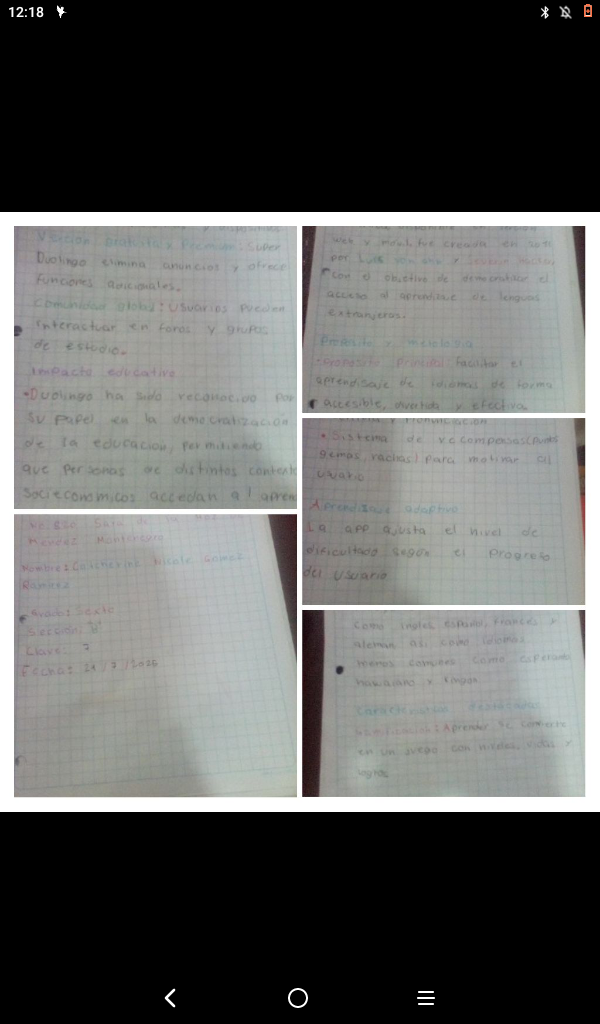 12:18
Version gratuita y Premium: Super
Duolingo elimina anuncios y ofrece
funciones adicionales.
Comunidad global: Usuarios pueden
interactuar en foros y grupos
de estudio.
Impacto educativo
•Duolingo ha sido reconocido por
su papel en la democratización
de la educación, permitiendo
que personas de distintos context
socieconomicos accedan al apren
web y movil fue creada en 2011
por Luis von ahn y
con el objetivo de democratizar el
acceso al aprendizaje de lenguas
extranjeras.
Proposito y
•Proposito Principal: facilitar el
aprendisaje de idiomas de forma
accesible, divertida y efectiva
• Sistema de recompensas(puntos
gemas, rachas) para motivar al
usuario
Aprendisaje adaptivo
La app ajusta el nivel de
dificultad segun el progreso
del usuario
Nicole Gomez
Ramirez
Grado: Sexto
Sección: "B"
Clave: 7
Fecha: 21/7/2025
como ingles, español, Frances y
aleman asi como idiomas
menos comunes como esperanto
hawaiano y
Gamificacion: Aprender se convierte
en un juego con niveles, vidas y
logros